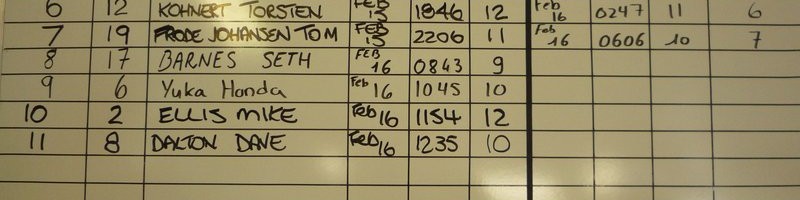 6 12 KOHNERT TORSTEN FEB 15 1846 12 Feb 16 0247 11 6
7 19 FRODE JOHANSEN TOM FEB 15 2206 11 Feb 16 0606 10 7
8 17 BARNES SETH FEB 16 0843 9
9 6 Yuka Honda Feb 16 1045 10
10 2 ELLIS MIKE Feb 16 1154 12
11 8 DALTON DAVE Feb 16 1235 10